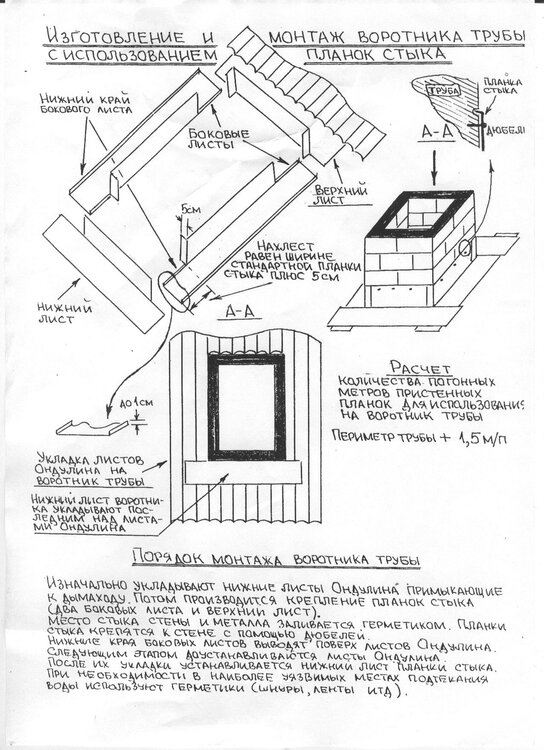 Изготовление и монтаж воротника трубы
с использованием планок стыка
Нижний край
бокового листа
Боковые
листы
Верхний
лист
Труба
Планка
стыка
Дюбель
А-А
5см
Нахлест
равен ширине
стандартной планки
стыка плюс 5см
А-А
Нижний
лист
до 1см
Расчет
количества погонных
метров пристенных
планок для использования
на воротник трубы
Периметр трубы + 1,5 м/п
Укладка листов
Ондулина на
воротник трубы
Нижний лист воротни-
ка укладывают пос-
ледним над листа-
ми Ондулина
Порядок монтажа воротника трубы
Изначально укладывают нижние листы Ондулина примыкающие
к дымаходу. Потом производится крепление планок стыка
(два боковых листа и верхний лист).
Место стыка стены и металла заливается герметиком. Планки
стыка крепятся к стене с помощью дюбелей.
Нижние края боковых листов выводят поверх листов Ондулина.
Следующим этапом доустанавливаются листы Ондулина.
После их укладки устанавливается нижний лист планки стыка.
При необходимости в наиболее уязвимых местах подтекания
воды используют герметики (шнуры, ленты итд).